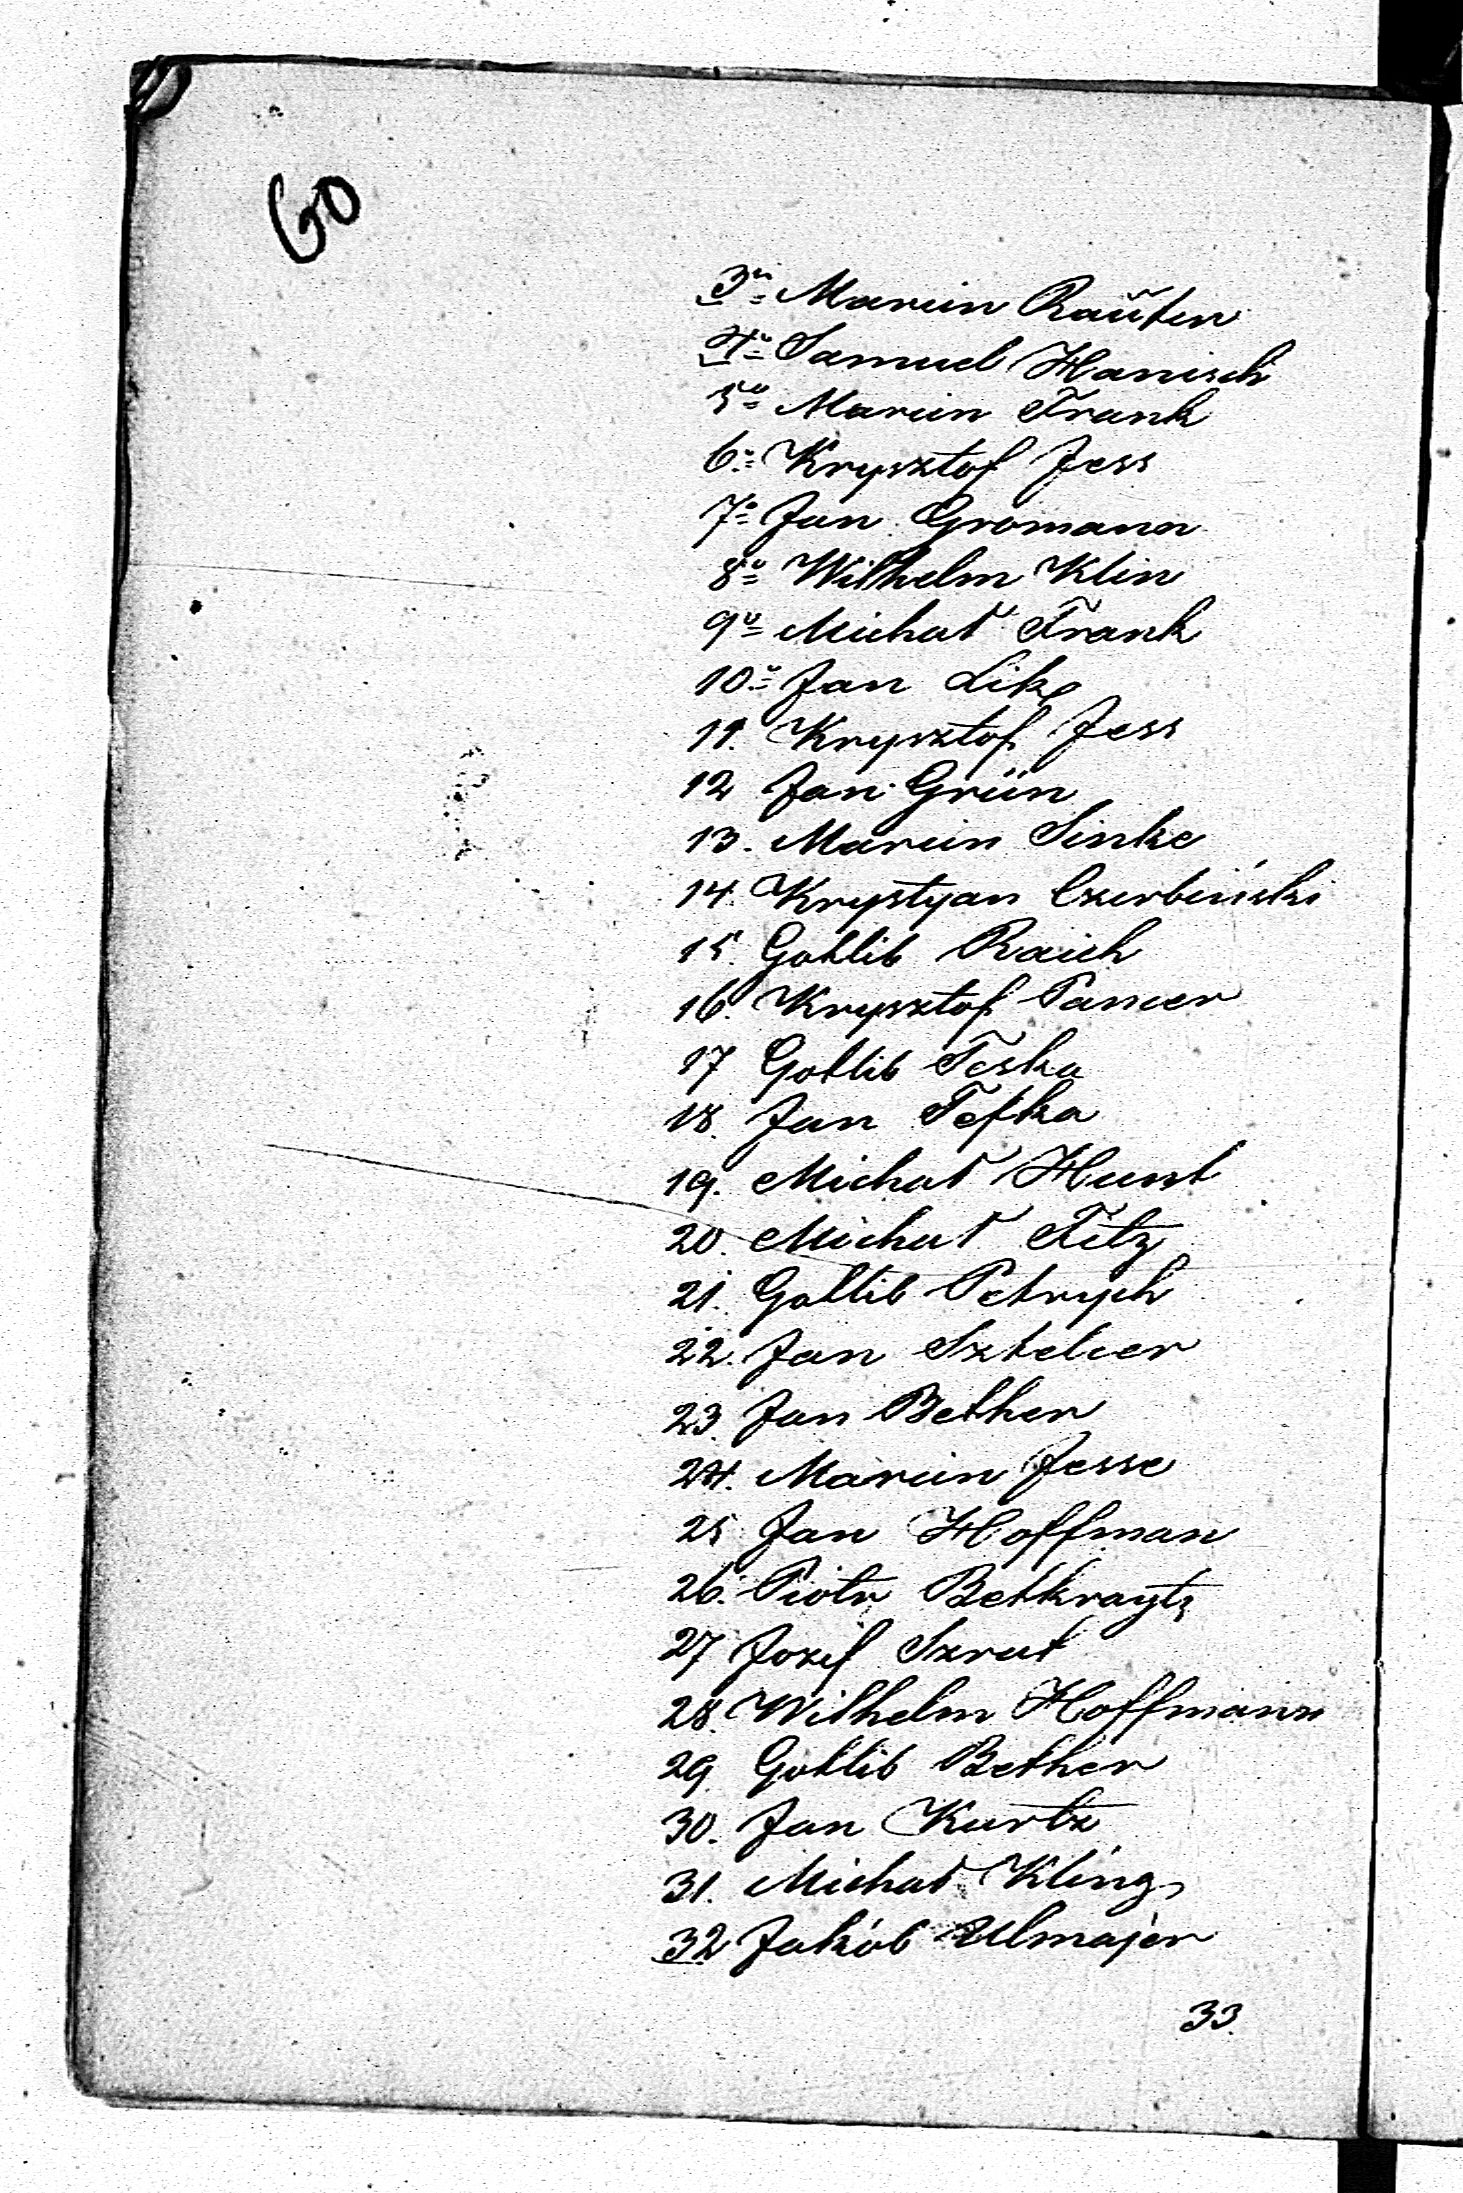 60
3º Marcin Raüter
4º Samuel Hanisch
5º Marcin Frank
6º Krysztof Jess
7º Jan Gromann
8º Wilhelm Klin
9º Michał Frank
10º Jan Like
11. Krysztof Jess
12 Jan Grün
13. Marcin Sinke
14. Krystyan Czerbiński
15. Gotlib Raich
16. Krysztof Pancer
17 Gotlib Teska
18. Jan Tefka
19. Michał Hunt
20. Michał Fitz
21. Gottlib Petrych
22. Jan Sztelcer
23. Jan Bether
24. Marcin Jesse
25 Jan Hoffman
26. Piotr Betkraytz
27 Jozif Szrut
28. Wilhelm Hoffmann
29 Gotlib Bether
30. Jan Kurtz
31. Michał Kling
32 Jakób Ulmajer
33.